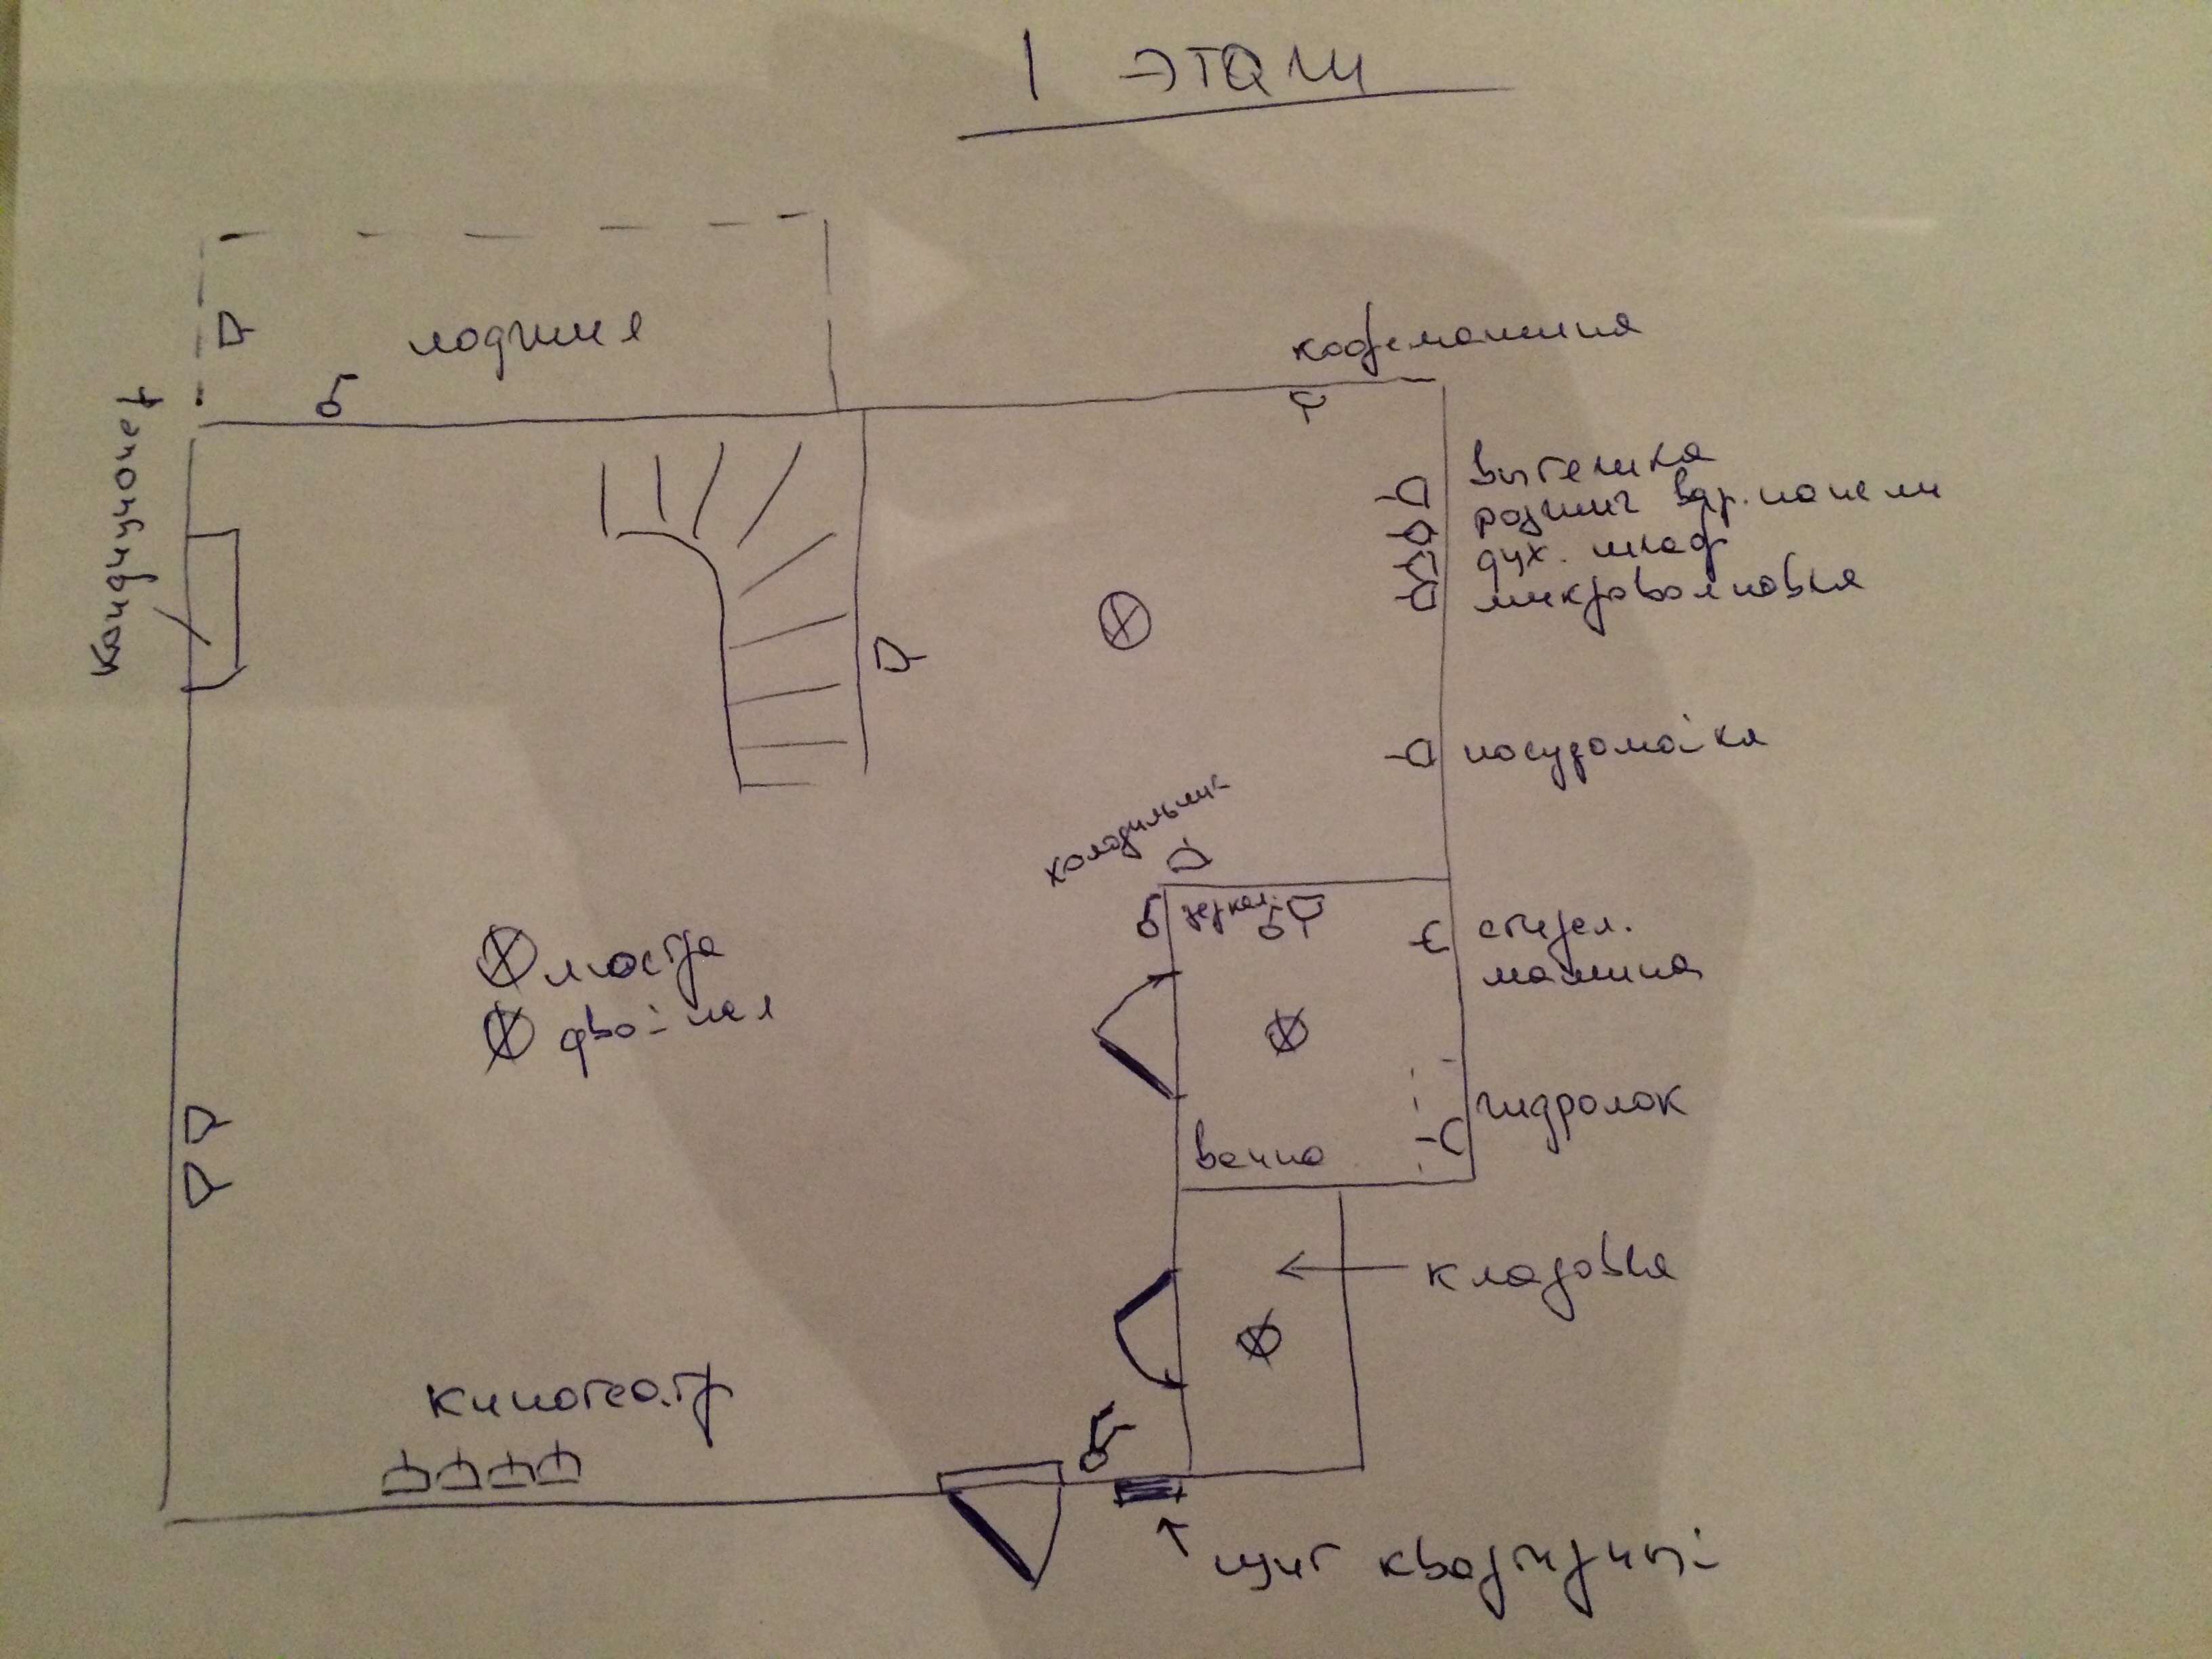 1 этаж
лоджия
кофемашина
Кондиционер
вытяжка
розжиг вар. панели
дух. шкаф
микроволновка
посудомойка
холодильник
зеркал.
стирал.
машина
люстра
двойная
гидролок
ванна
кладовка
кинотеатр
щит квартирный